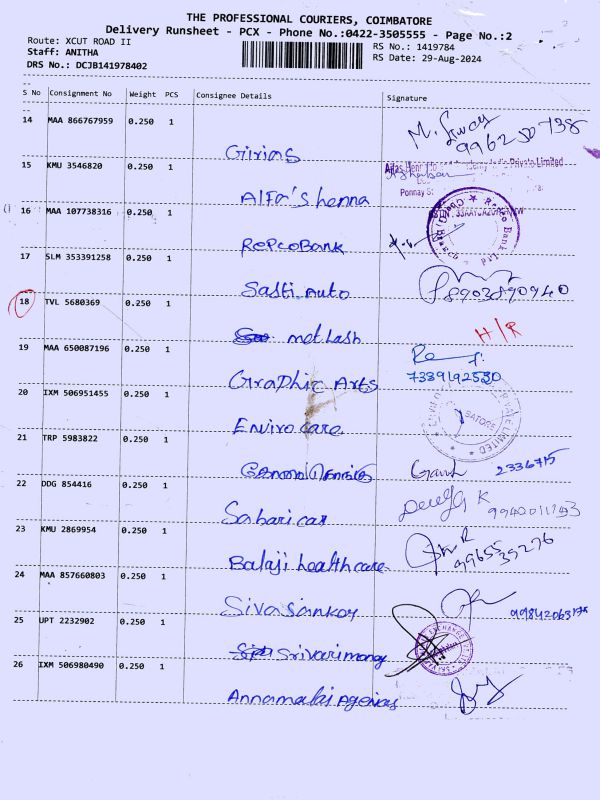 THE PROFESSIONAL COURIERS, COIMBATORE
Delivery Runsheet - PCX - Phone No.:0422-3505555 - Page No.:2
Route: XCUT ROAD II
RS No.: 1419784
Staff: ANITHA
RS Date: 29-Aug-2024
DRS No.: DCJB141978402
S No Consignment No Weight PCS Consignee Details Signature
14 MAA 866767959 0.250 1
Girias
15 KMU 3546820 0.250 1
Alfa's henna
16 MAA 107738316 0.250 1
RepcoBank
17 SLM 353391258 0.250 1
Sasti Auto 8903890940
18 TVL 5680369 0.250 1
H/R
19 MAA 650087196 0.250 1
Graphic Arts
20 IXM 506951455 0.250 1
Enviro care
21 TRP 5983822 0.250 1
2336715
22 DDG 854416 0.250 1
Sabari car
23 KMU 2869954 0.250 1
Balaji healthcare
24 MAA 857660803 0.250 1
Sivasankar
25 UPT 2232902 0.250 1
Srivarimoney
26 IXM 506980490 0.250 1
Annamalai Agencies